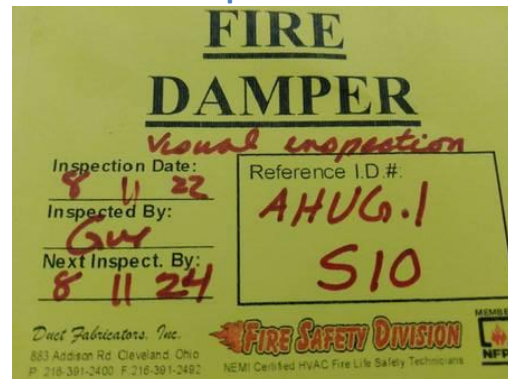 FIRE
DAMPER
Visual inspection
Inspection Date:
8 11 22
Inspected By:
Guy
Next Inspect. By:
8 11 24
Reference I.D.#:
AHUG.1
S10
Duct Fabricators, Inc.
883 Addison Rd. Cleveland, Ohio
P: 216-391-2400 F:216-391-2492
FIRE SAFETY DIVISION
NEMI Certified HVAC Fire Life Safety Technicians
MEMBE
NFP